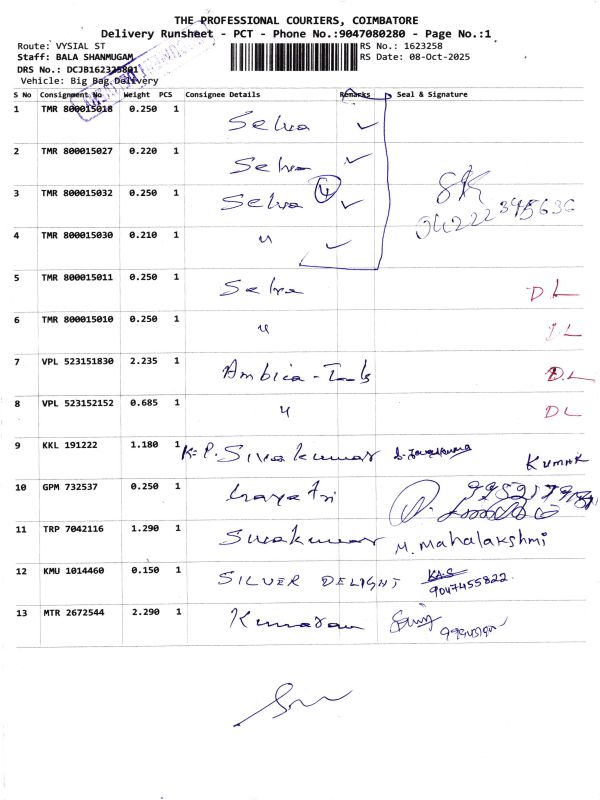 THE PROFESSIONAL COURIERS, COIMBATORE
Delivery Runsheet - PCT - Phone No.:9047080280 - Page No.:1
Route: VYSIAL ST RS No.: 1623258
Staff: BALA SHANMUGAM RS Date: 08-Oct-2025
DRS No.: DCJB162325801
Vehicle: Big Bag Delivery
S No Consignment No Weight PCS Consignee Details Remarks Seal & Signature
1 TMR 800015018 0.250 1 Selva ✓
2 TMR 800015027 0.220 1 Selva ✓
3 TMR 800015032 0.250 1 Selva 4 ✓
4 TMR 800015030 0.210 1 " ✓
5 TMR 800015011 0.250 1 Selva DL
6 TMR 800015010 0.250 1 " DL
7 VPL 523151830 2.235 1 Ambica-Tools D.L
8 VPL 523152152 0.685 1 " DL
9 KKL 191222 1.180 1 K.P. Sivakumar KUMAR
10 GPM 732537 0.250 1 Gayatri
11 TRP 7042116 1.290 1 Sivakumar M. Mahalakshmi
12 KMU 1014460 0.150 1 SILVER DELIGHT KA.S
9047455822
13 MTR 2672544 2.290 1 Kumaran